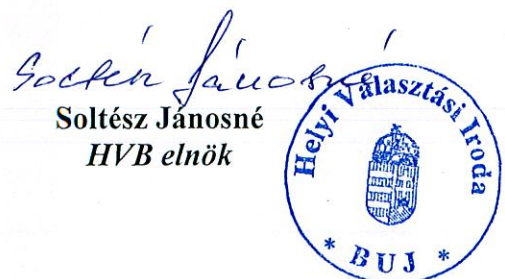 Soltész Jánosné
Soltész Jánosné
HVB elnök
Helyi Választási Iroda
* BUJ *